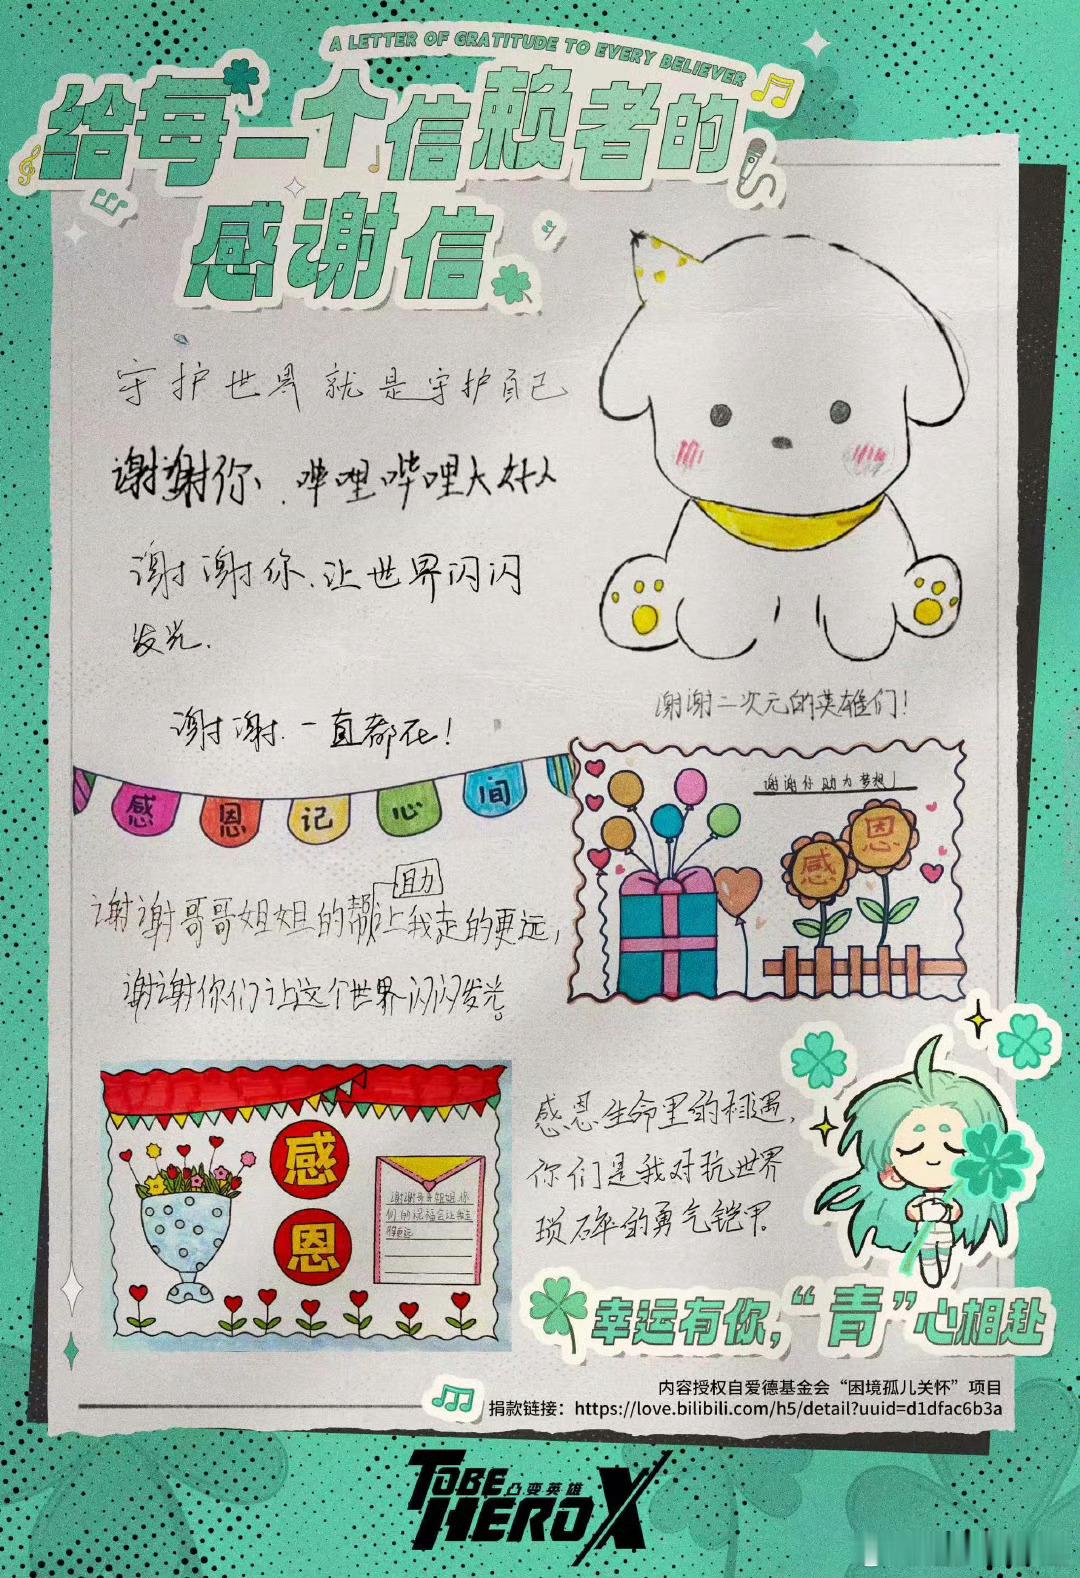 A LETTER OF GRATITUDE TO EVERY BELIEVER
给每一个信赖者的
感谢信
守护世界就是守护自己
谢谢你、哔哩哔哩大好人
谢谢你、让世界闪闪
发光.
谢谢.一直都在!
谢谢二次元的英雄们!
感恩记心间
谢谢你助力梦想!
感恩
助
谢谢哥哥姐姐的帮让我走的更远,
谢谢你们让这个世界闪闪发光。
感
恩
谢谢哥哥姐姐你
们的祝福会让我走
得更远
感恩生命里的相遇,
你们是我对抗世界
琐碎的勇气铠甲.
幸运有你,“青”心相赴
内容授权自爱德基金会“困境孤儿关怀”项目
捐款链接：https://love.bilibili.com/h5/detail?uuid=d1dfac6b3a
TO BE
凸变英雄
HERO X